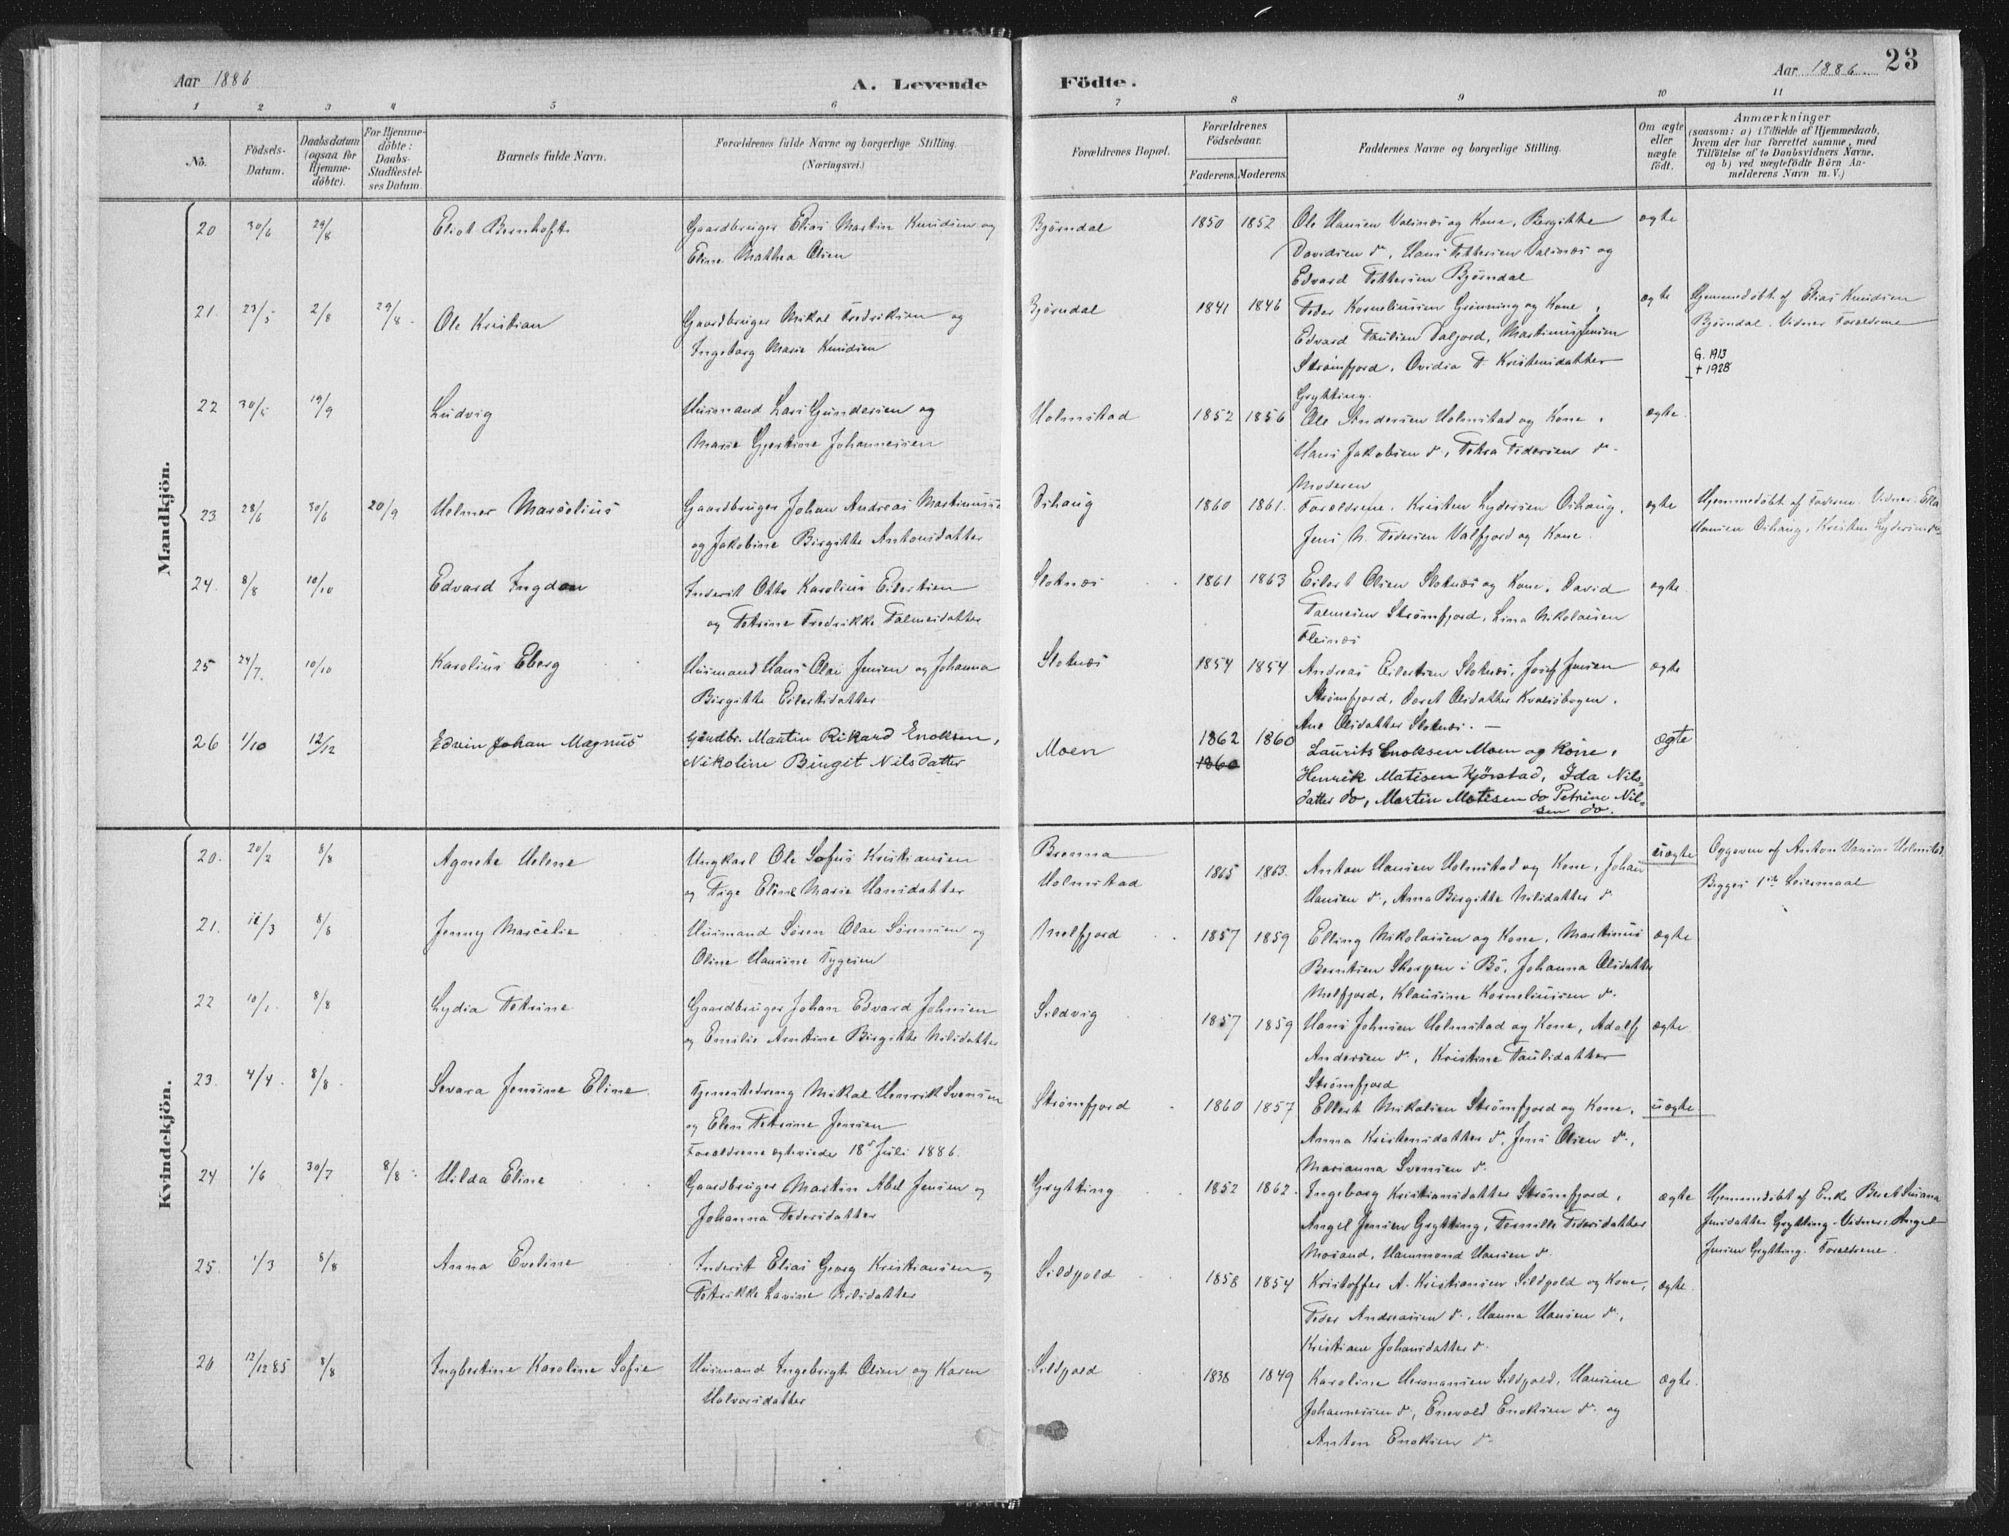 Aar 1886
A. Levende
Födte.
Aar 1886.
23
1 2 3 4 5 6 7 8 9 10 11
No.
Födsels-
Datum.
Daabsdatum
(ogsaa for
Hjemme-
döbte).
For Hjemme-
döbte:
Daabs-
Stadfæstel-
ses Datum.
Barnets fulde Navn.
Forældrenes fulde Navne og borgerlige Stilling.
(Næringsvei.)
Forældrenes Bopæl.
Forældrenes
Födselsaar.
Faderens. Moderens.
Faddernes Navne og borgerlige Stilling.
Om ægte
eller
uægte
födt.
Anmærkninger
(saasom: a) i Tilfælde af Hjemmedaab,
hvem der har forrettet samme, med
Tilföielse af to Daabsvidners Navne,
og b) ved uægtefödte Börn An-
melderens Navn m. V.)
Mandkjön.
20 30/6 29/8 Eliot Bernhoft Gaardbruger Elias Martin Knudsen og
Eline Mathea Olsen
Bjørndal 1850 1852 Ole Hansen Valsnæs og Kone, Bergitte
Davidsen do, Hans Pettersen Valsnæs og
Edvard Pettersen Bjørndal
ægte
21. 23/5 2/8 29/8 Ole Kristian Gaardbruger Mikal Fredriksen og
Ingeborg Marie Knudsen
Bjørndal 1841 1846 Peder Korneliussen Grønning og Kone,
Edvard Paulsen Valfjord, Martinus Jensen
Strømfjord, Ovidia P. Kristensdatter
Grytting.
ægte Hjemmedøbt af Elias Knudsen
Bjørndal. Vidner Forældrene
G. 1913
+ 1928
22 30/5 19/9 Ludvig Husmand Lars Gundersen og
Marie Gjertine Johannesen
Holmstad 1852 1856 Ole Andersen Holmstad og Kone,
Hans Jakobsen do, Petra Pedersen do
Moderen
ægte.
23 28/6 30/6 20/9 Helmer Marselius Gaardbruger Johan Andreas Martinussen
og Jakobine Birgitte Antonsdatter
Oihaug 1860 1861. Forældrene, Kristen Lydersen Oihaug,
Jens N. Pedersen Valfjord og Kone.
ægte Hjemmedøbt af Faderen. Vidner: Ella
Hansen Oihaug, Kristen Lydersen do
24. 8/8 10/10 Edvard Ingdon Inderst Otto Karolius Eilertsen
og Petrine Fredrikke Palmesdatter
Sloknæs 1861 1863 Eilert Olsen Sloknæs og Kone, David
Palmesen Strømfjord, Lina Nikolaisen
Fleinæs
ægte
25 24/7. 10/10 Karolius Eberg Husmand Hans Olai Jensen og Johanna
Birgitte Eilertsdatter
Sloknæs 1854 1854 Andreas Eilertsen Sloknæs, Josef Jensen
Strømfjord, Doret Olsdatter Kvalsøbogen,
Ane Olsdatter Sloknæs. —
ægte
26 1/10 12/12 Edvin Johan Magnus Gaardbr. Martin Rikard Enoksen,
Nikoline Birgit Nilsdatter
Moen 1862 1860
1860
Laurits Enoksen Moen og Kone,
Henrik Matisen Kjørstad, Ida Nils-
datter do, Martin Matisen do Petrine Nil-
sen do.
ægte
Kvindekjön.
20. 20/2 8/8 Agnete Helene Ungkarl Ole Sofus Kristiansen
og Pige Eline Marie Hansdatter
Brenna
Holmstad
1865 1863. Anton Hansen Holmstad og Kone, Johan
Hansen do, Anna Birgitte Nilsdatter do
uægte Opgaven af Anton Hansen Holmstad
Begges 1ste Leiermaal
21. 11/3 8/8 Jenny Marcelie Husmand Søren Olai Sørensen og
Oline Hansine Tygesen
Melfjord 1857 1859 Elling Nikolaisen og Kone, Martinus
Berntsen Skorpen i Bø, Johanna Olsdatter
Melfjord, Klausine Korneliussen do.
ægte
22 10/1. 8/8 Lydia Petrine Gaardbruger Johan Edvard Johnsen
og Emilie Arntine Birgitte Nilsdatter
Sildvig 1857 1859 Hans Johnsen Holmstad og Kone, Adolf
Andersen do, Kristine Paulsdatter
Strømfjord
ægte
23. 4/4. 8/8. Sevara Jensine Eline. Tjenestedreng Mikal Henrik Svensen
og Elen Petrine Jensen
Forældrene egteviede 18de Juli 1886.
Strømfjord 1860 1857 Ellert Mikalsen Strømfjord og Kone,
Anna Kristensdatter do, Jens Olsen do,
Marianna Svensen do.
uægte
24 1/6 30/7 8/8. Hilda Eline Gaardbruger Martin Abel Jensen og
Johanna Pedersdatter
Grytting 1852 1862. Ingeborg Kristiansdatter Strømfjord,
Angel Jensen Grytting, Pernille Pedersdatter
Morand, Hammond Hansen do.
ægte Hjemmedøbt af Enke Beret Susana
Jensdatter Grytting. Vidner: Angel
Jensen Grytting. Forældrene.
25. 1/3 8/8 Anna Eveline Inderst Elias Georg Kristiansen og
Petrikke Lavine Nilsdatter
Sildpold 1858 1854 Kristoffer A. Kristiansen Sildpold og Kone,
Peder Andreassen do, Hanna Hansen do,
Kristiane Johansdatter do.
ægte.
26 12/12 85 8/8 Ingbertine Karoline Sofie Husmand Ingebrigt Olsen og Karen
Halvorsdatter
Sildpold 1838 1849 Karoline Hermansen Sildpold, Hansine
Johannesen do, Enevold Enoksen do. og
Anton Enoksen do
ægte.